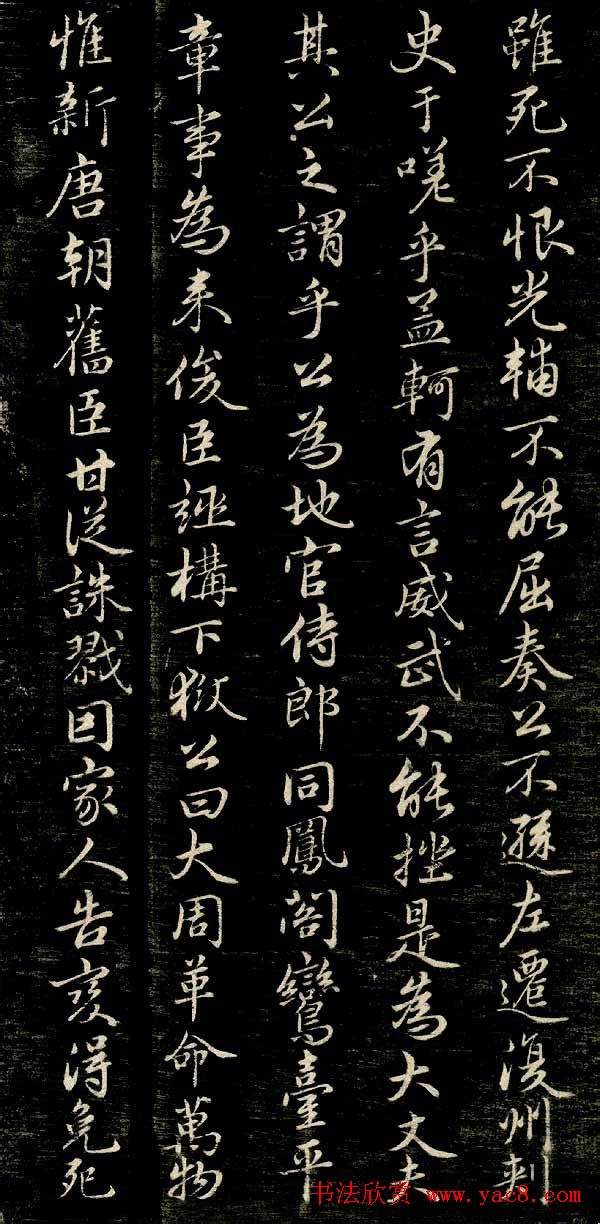 雖死不恨光輔不能屈奏公不遜左遷復州刺
史于嗟乎孟軻有言威武不能挫是為大丈夫
其公之謂乎公為地官侍郎同鳳閣鸞臺平
章事為来俊臣誣構下獄公曰大周革命萬物
惟新唐朝舊臣甘從誅戮因家人告變得免死
书法欣赏 www.yac8.com